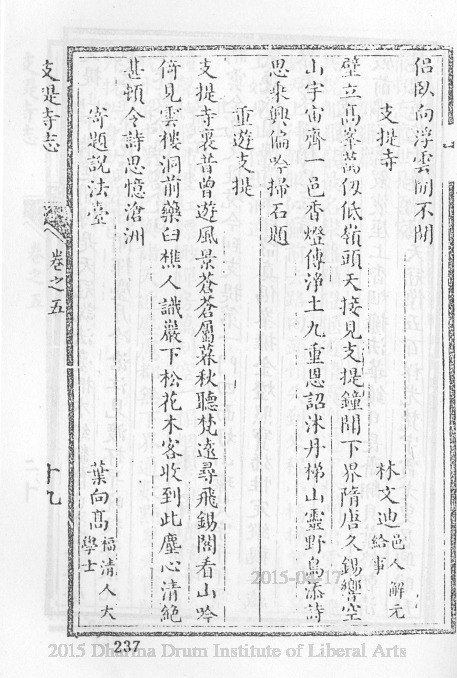 侶臥向浮雲閒不關
支提寺　林文迪邑人解元給事
壁立高峯萬仭低嶺頭天接見支提鐘聞下界隋唐久錫響空
山宇宙齊一邑香燈傳淨土九重恩詔沐丹梯山靈野鳥添詩
思乘興偏吟掃石題
重遊支提
支提寺裏昔曾遊風景蒼蒼屬暮秋聽梵遠尋飛錫閣看山吟
倚見雲樓洞前藥臼樵人識巖下松花木客收到此塵心清絕
甚頓令詩思憶滄洲
寄題說法臺　葉向高福清人大學士
支提寺志　卷之五　十九
237
2015-04-17
2015 Dharma Drum Institute of Liberal Arts